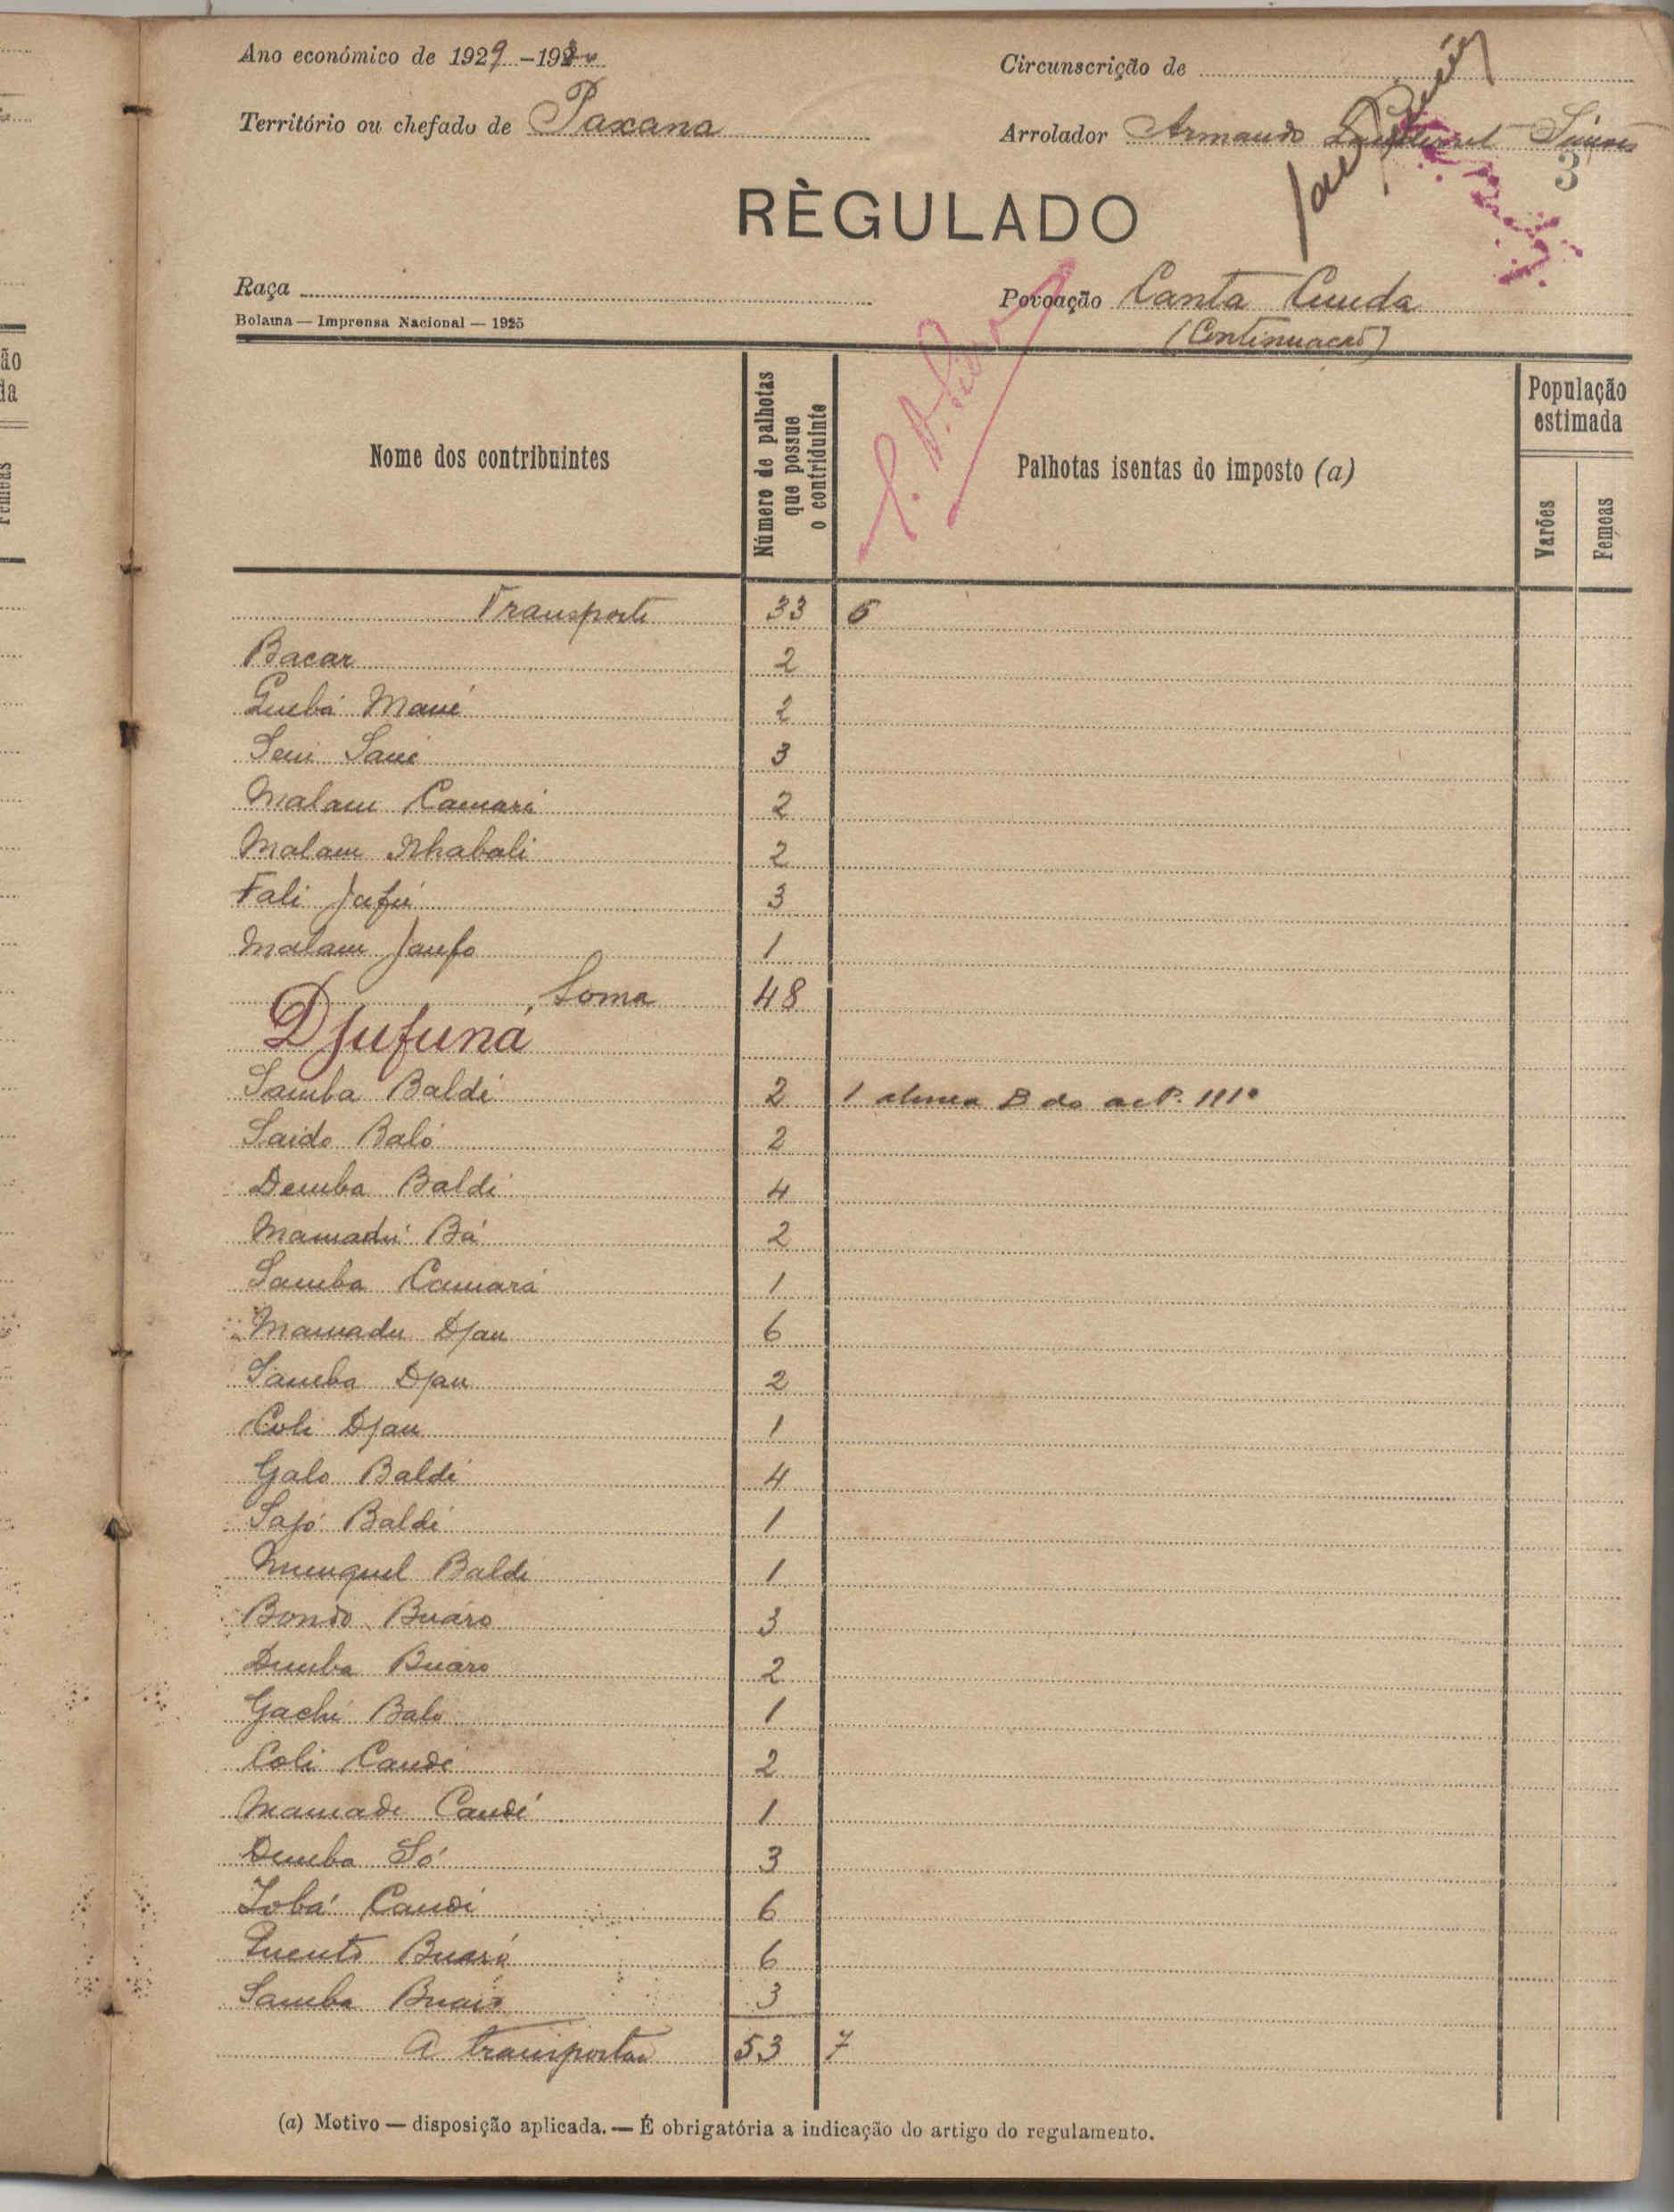 Ano económico de 1929-1930
Circunscrição de
Território ou chefado de Paxana
Arrolador Armando
3
RÈGULADO
Raça
Povoação Canta Cunda
Bolama — Imprensa Nacional — 1925
(Continuação)
Nome dos contribuintes
Número de palhotas
que possue
o contriduinte
Palhotas isentas do imposto (a)
População
estimada
Varões
Femeas
Transporte 33 6
Bacar 2
Quebá Mané 2
Seni Sané 3
Malam Camará 2
Malam Nhabali 2
Fali Jafú 3
Malam Janfo 1
Soma 48
Djufuná
Samba Baldé 2 1 alinea B do artº. 111º
Saido Baló 2
Demba Baldé 4
Mamadú Bá 2
Samba Camará 1
Mamadu Djau 6
Samba Djau 2
Coli Djau 1
Galo Baldé 4
Sajó Baldé 1
Baldé 1
Bondo Buaro 3
Demba Buaro 2
Gachi Balo 1
Coli Candé 2
Mamade Candé 1
Demba Só 3
Iobá Candé 6
Quento Buaró 6
Samba Buaró 3
A transportar 53 7
(a) Motivo — disposição aplicada. — É obrigatória a indicação do artigo do regulamento.